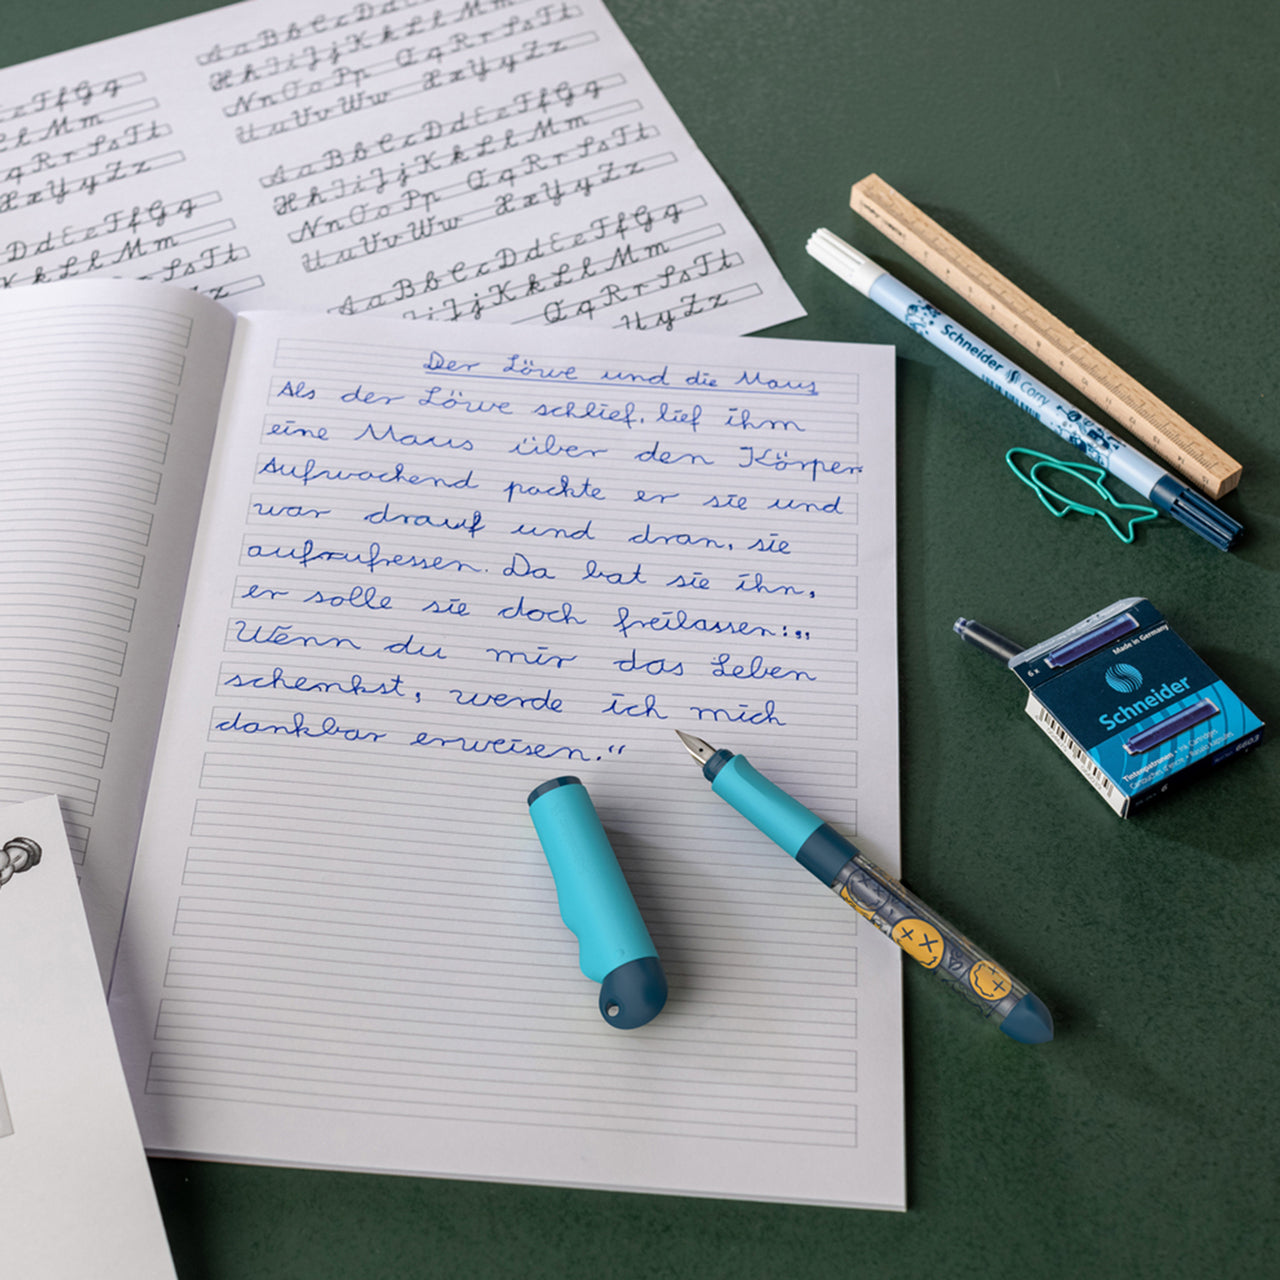 Aa Bb Cc Dd
Hh Ii Jj Kk Ll Mm
Nn Oo Pp Qq Rr Ss Tt
Uu Vv Ww Xx Yy Zz
Ff Gg
Mm
Rr Ss Tt
Xx Yy Zz
Aa Bb Cc Dd Ee Ff Gg
Hh Ii Jj Kk Ll Mm
Nn Oo Pp Qq Rr Ss Tt
Uu Vv Ww Xx Yy Zz
Dd Ee Ff Gg
Kk Ll Mm
Ss Tt
Zz
Aa Bb Cc Dd Ee Ff Gg
Jj Kk Ll Mm
Qq Rr Ss Tt
Yy Zz
Der Löwe und die Maus
Als der Löwe schlief, lief ihm
eine Maus über den Körper.
Aufwachend packte er sie und
war drauf und dran, sie
aufzufressen. Da bat sie ihn,
er solle sie doch freilassen: „
Wenn du mir das Leben
schenkst, werde ich mich
dankbar erweisen.“
Schneider Corry
6 x
Made in Germany
Schneider
Tintenpatronen • Ink Cartridges
Cartouches d'encre •
6603